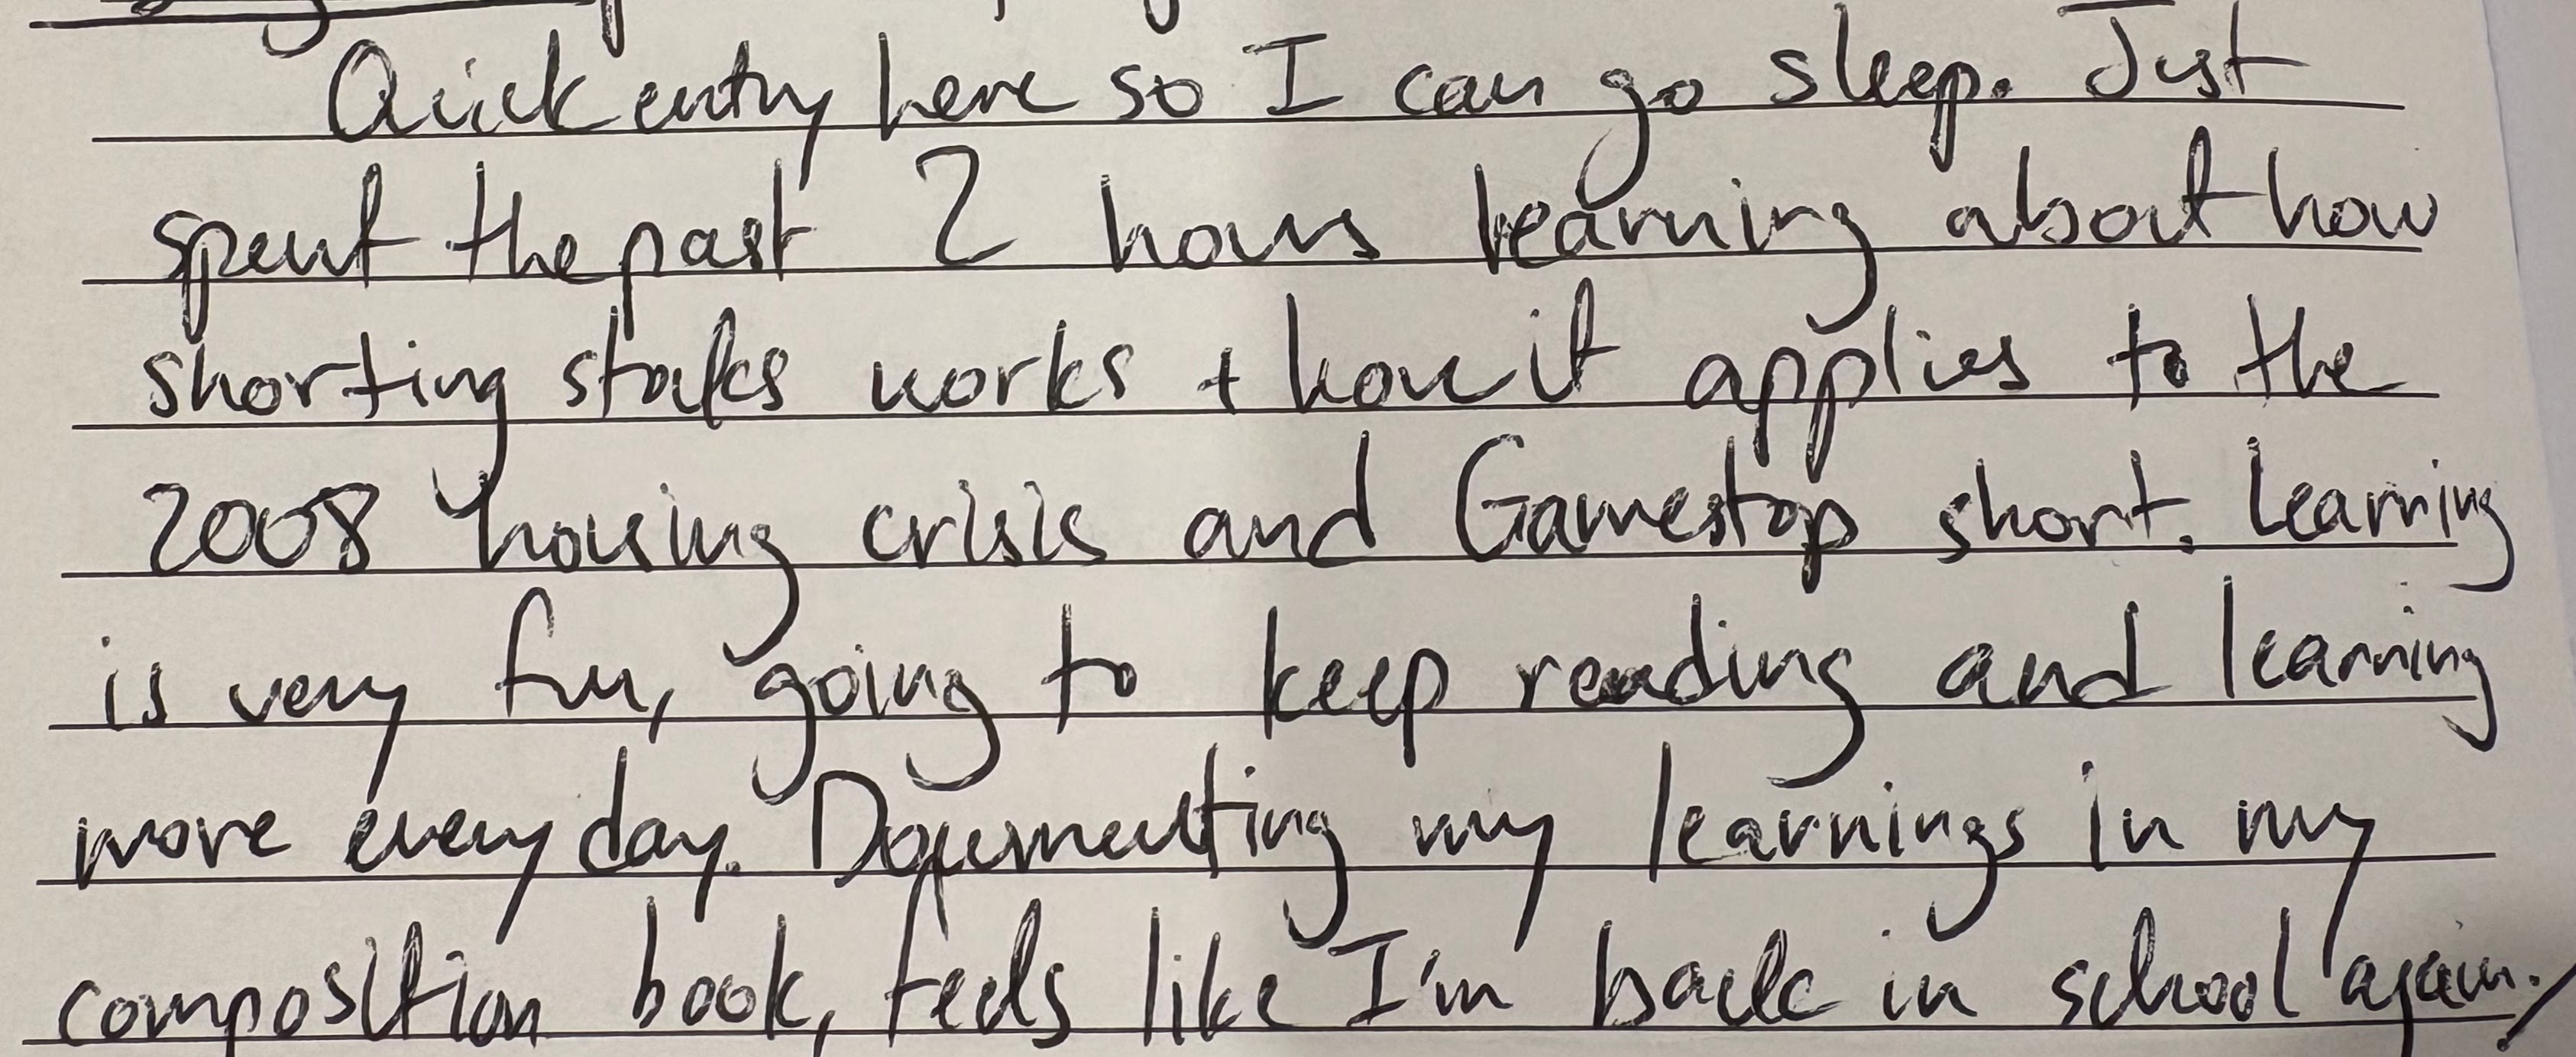 Quick entry here so I can go sleep. Just
spent the past 2 hours learning about how
shorting stocks works + how it applies to the
2008 housing crisis and Gamestop short. Learning
is very fun, going to keep reading and learning
more every day. Documenting my learnings in my
composition book, feels like I'm back in school again.